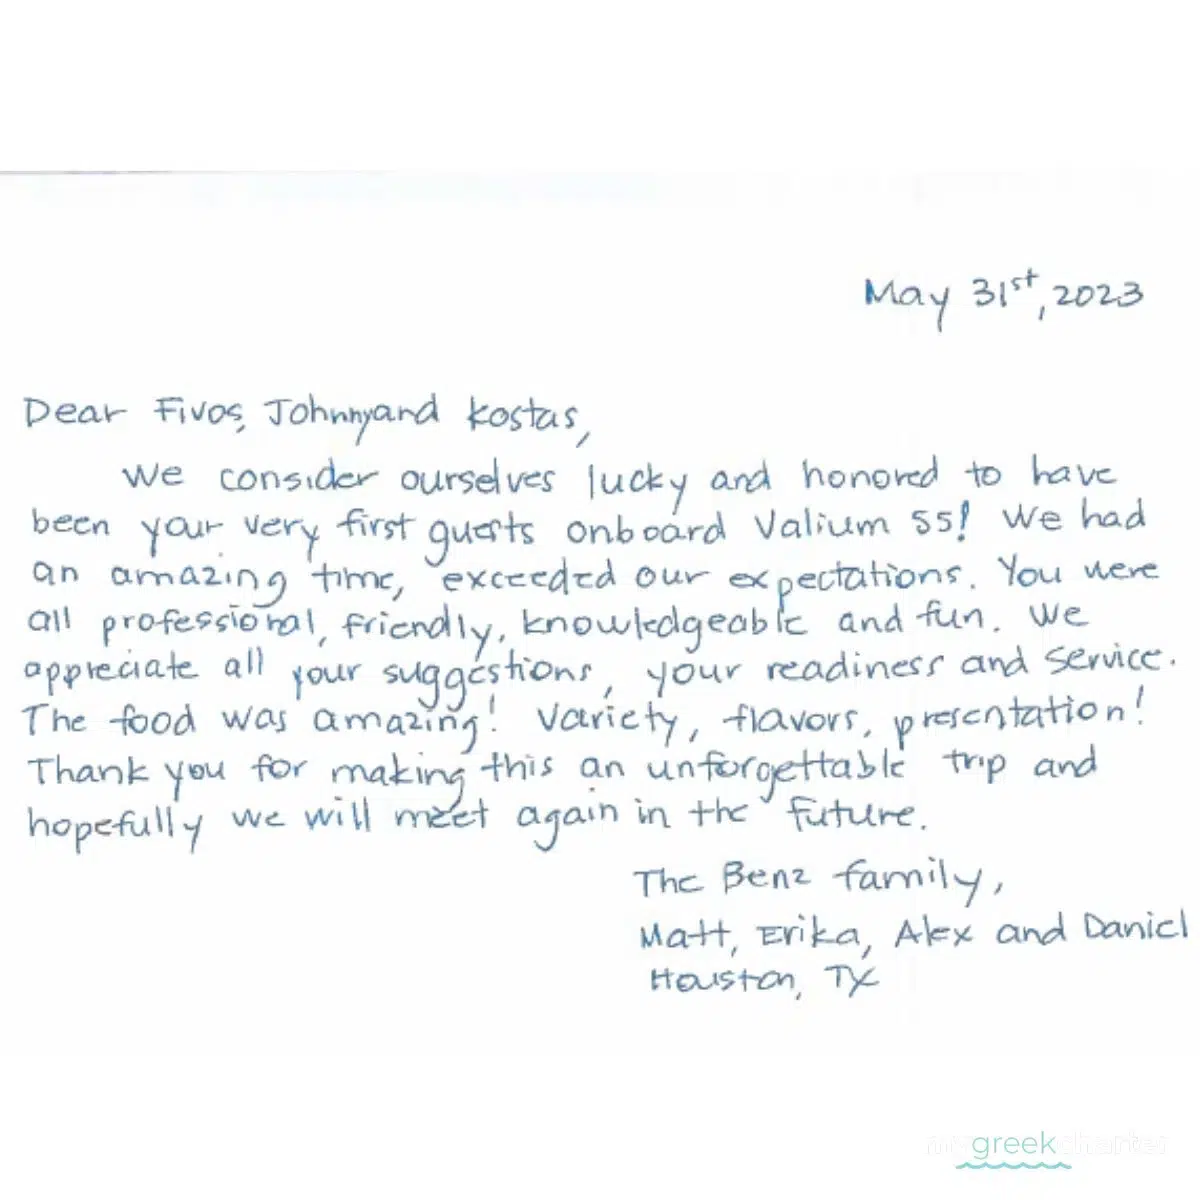 May 31st, 2023
Dear Fivos, Johnny and Kostas,
We consider ourselves lucky and honored to have
been your very first guests onboard Valium 55! We had
an amazing time, exceeded our expectations. You were
all professional, friendly, knowledgeable and fun. We
appreciate all your suggestions, your readiness and service.
The food was amazing! Variety, flavors, presentation!
Thank you for making this an unforgettable trip and
hopefully we will meet again in the future.
The Benz family,
Matt, Erika, Alex and Daniel
Houston, TX
my greek charter